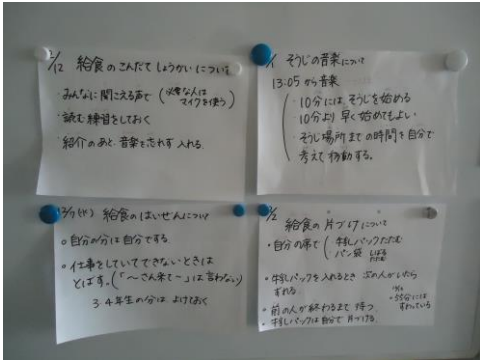 /12 給食のこんだてしょうかいについて
・みんなに聞こえる声で(必要な人は
マイクを使う)
・読む練習をしておく
・紹介のあと、音楽を忘れず入れる
/1 そうじの音楽について
13:05から音楽
・10分には そうじを始める
10分より早く始めてもよい
・そうじ場所までの時間を自分で
考えて移動する。
給食のはいぜんについて
・自分の分は自分でする
・仕事をしていてできないときは
とばす。(「〜さん来て〜」は言わない)
3・4年生の分は よけておく
/2 給食の片づけについて
・自分の席で(・牛乳パックたたむ
・パン袋 しばる
たたむ
・牛乳パックを入れるとき 次の人がいたら
ずれる
・前の人が終わるまで 待つ
・牛乳パックは自分で片づける。
・55分には
すわっている